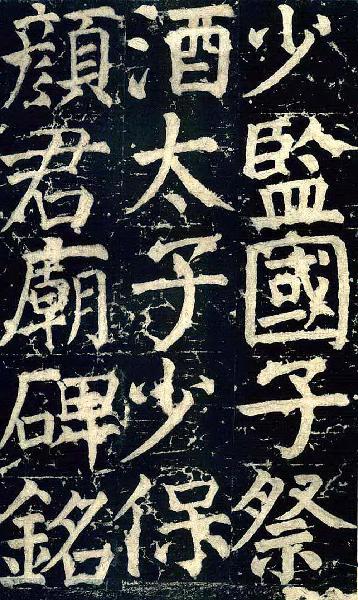 少監國子祭
酒太子少保
顔君廟碑銘